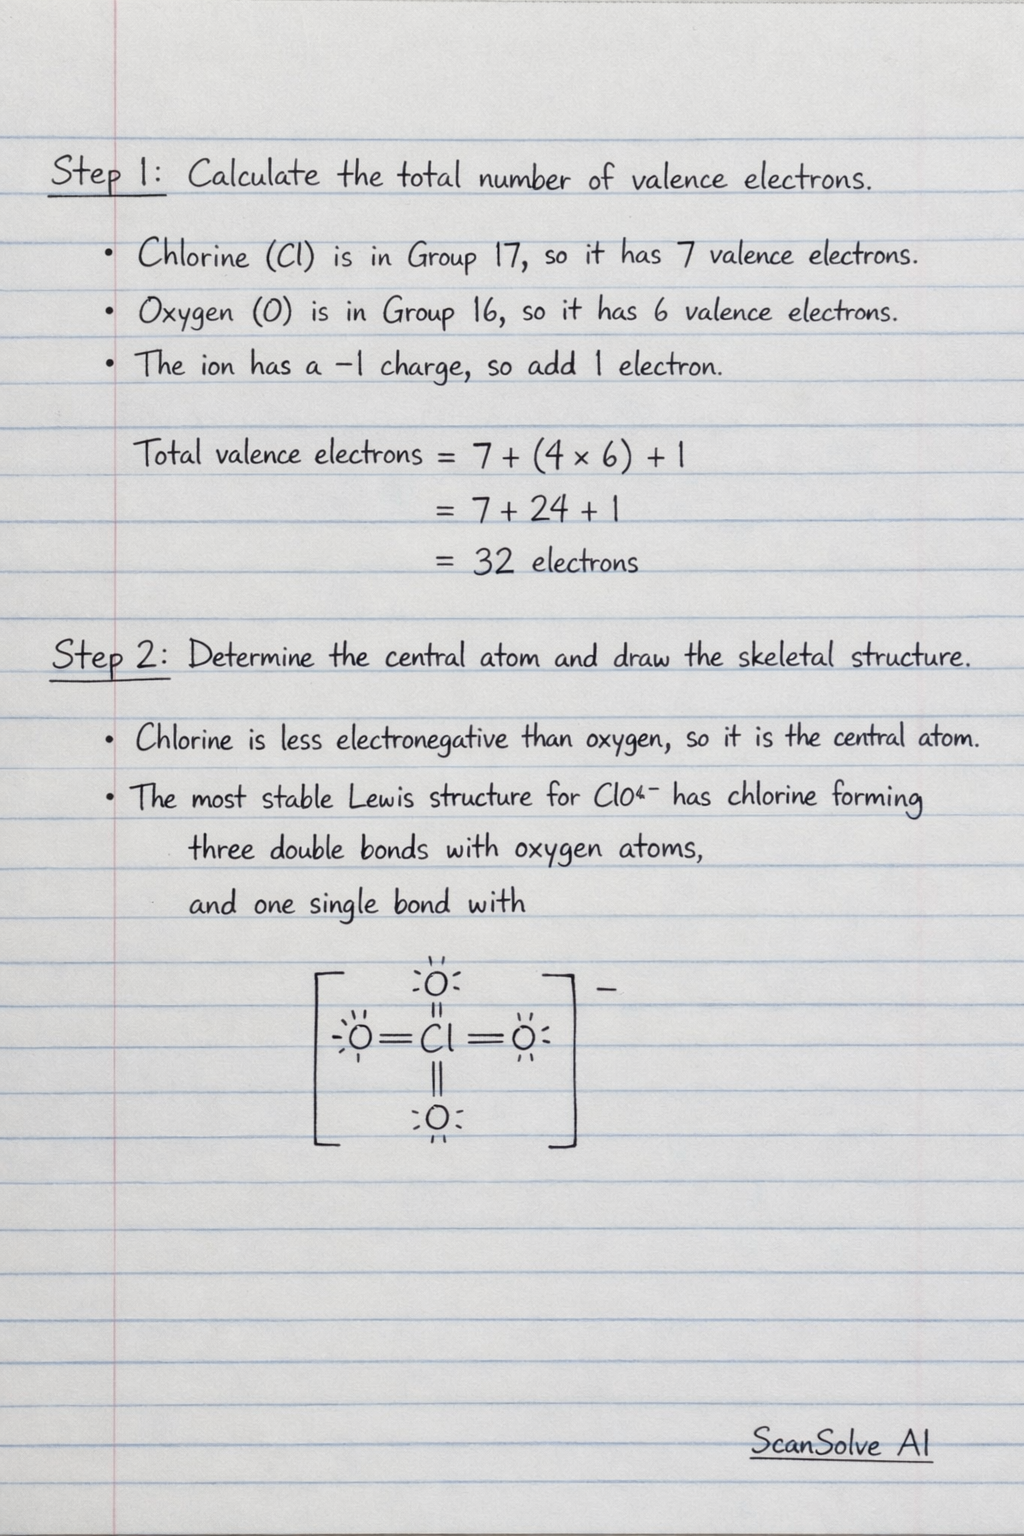 Step 1: Calculate the total number of valence electrons.
• Chlorine (Cl) is in Group 17, so it has 7 valence electrons.
• Oxygen (O) is in Group 16, so it has 6 valence electrons.
• The ion has a −1 charge, so add 1 electron.
Total valence electrons = 7 + (4 × 6) + 1
= 7 + 24 + 1
= 32 electrons
Step 2: Determine the central atom and draw the skeletal structure.
• Chlorine is less electronegative than oxygen, so it is the central atom.
• The most stable Lewis structure for ClO⁴⁻ has chlorine forming
three double bonds with oxygen atoms,
and one single bond with
O
O=Cl=O
O
−
ScanSolve AI